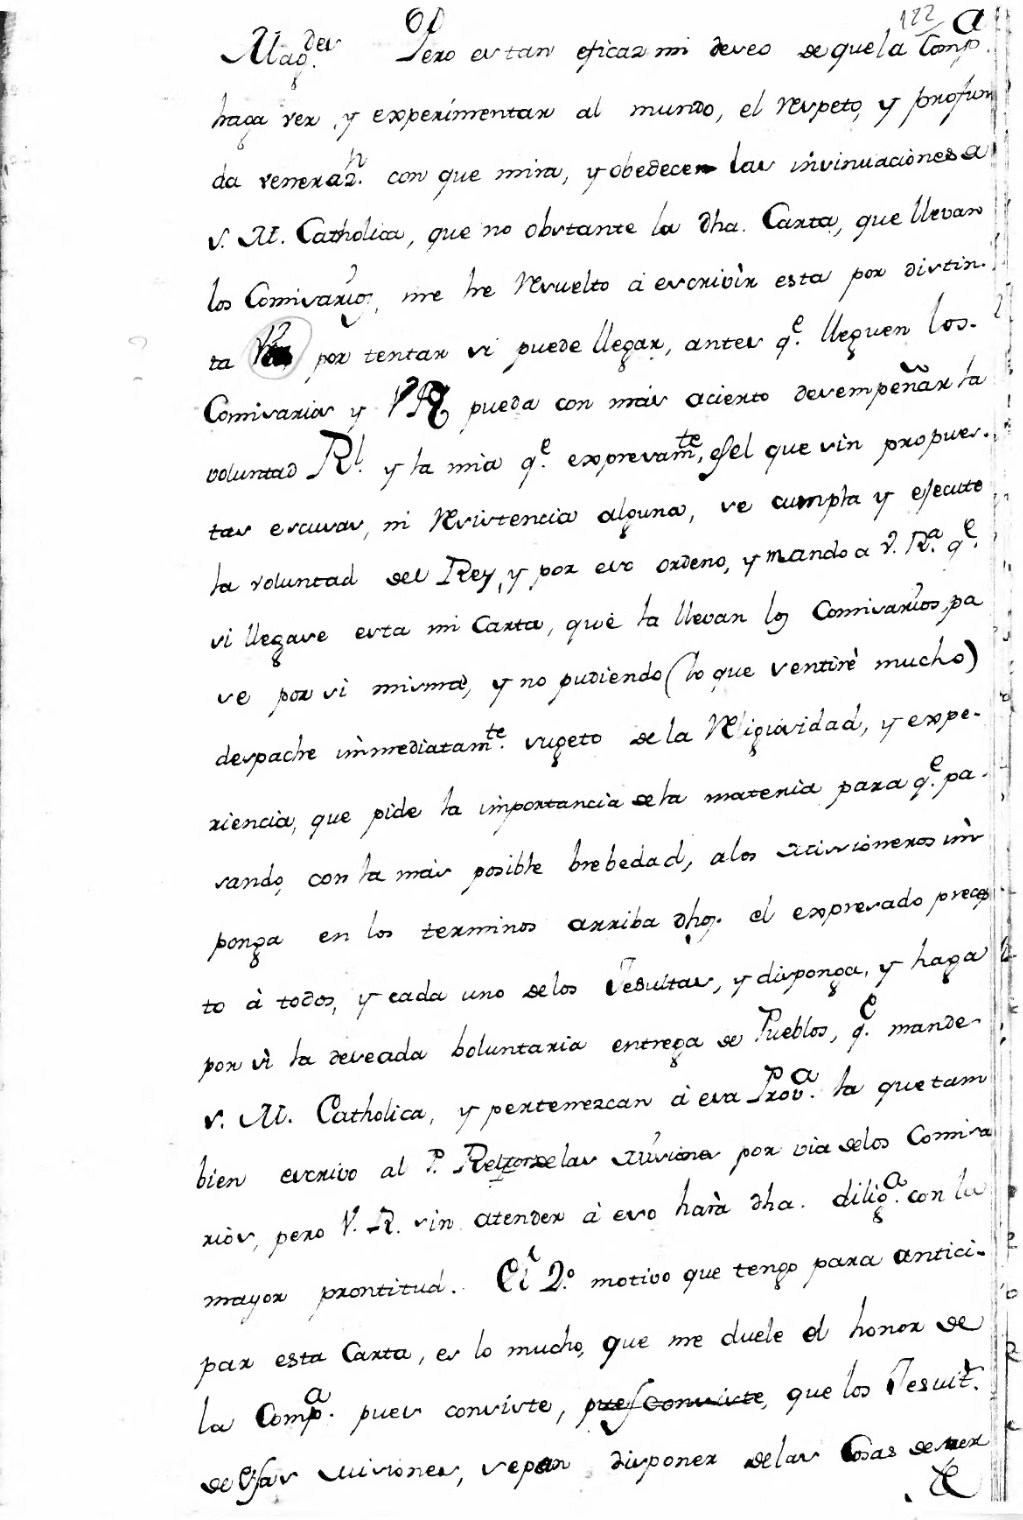 122
Magdes. Pero es tan eficaz mi deseo de que la Compa.
haga ver, y experimentar al mundo, el respeto, y profun
da veneraz.n con que mira, y obedece las insinuaciones de
S. M. Catholica, que no obstante la dha. Carta, que llevan
los Comisarios, me he resuelto â escrivìr esta por distin-
ta por tentar si puede llegar, antes q.e lleguen los-
Comisarios y VR pueda con màs acierto desempeñar la
voluntad Rl. y la mia q.e expresam.te, es el que sin propues-
tas escusas, ni resistencia alguna, se cumpla y ejecute
la voluntad del Rey, y por eso ordeno, y mando a V. R.a q.e
si llegase esta mi Carta, què la llevan los Comisarios, pa
se por si misma, y no pudiendo (lo que sentirè mucho)
despache inmediatam.te sugeto de la Religiosidad, y expe-
riencia, que pide la importancia de la materia para q.e pa-
sando, con la màs posible brebedad, a los Missioneros im
ponga en los terminos arriba dhos. el expresado precep
to à todos, y cada uno de los Jesuitas, y disponga, y haga
por sì la deseada boluntaria entrega de Pueblos, q.e mande
S. M. Catholica, y pertenezcan â esa Prov.a la que tam
bien escrivo al P. Retor de las Misiones por via de los Comisa
rios, pero V. R. sin atender â eso harà dha. dilig.a con la
mayor prontitud. El 2.o motivo que tengo para antici-
par esta Carta, es lo mucho, que me duele el honor de
la Comp.a pues consiste, pues consiste, que los Jesuit.
de esas Misiones, sepan disponer de las Cosas de ser